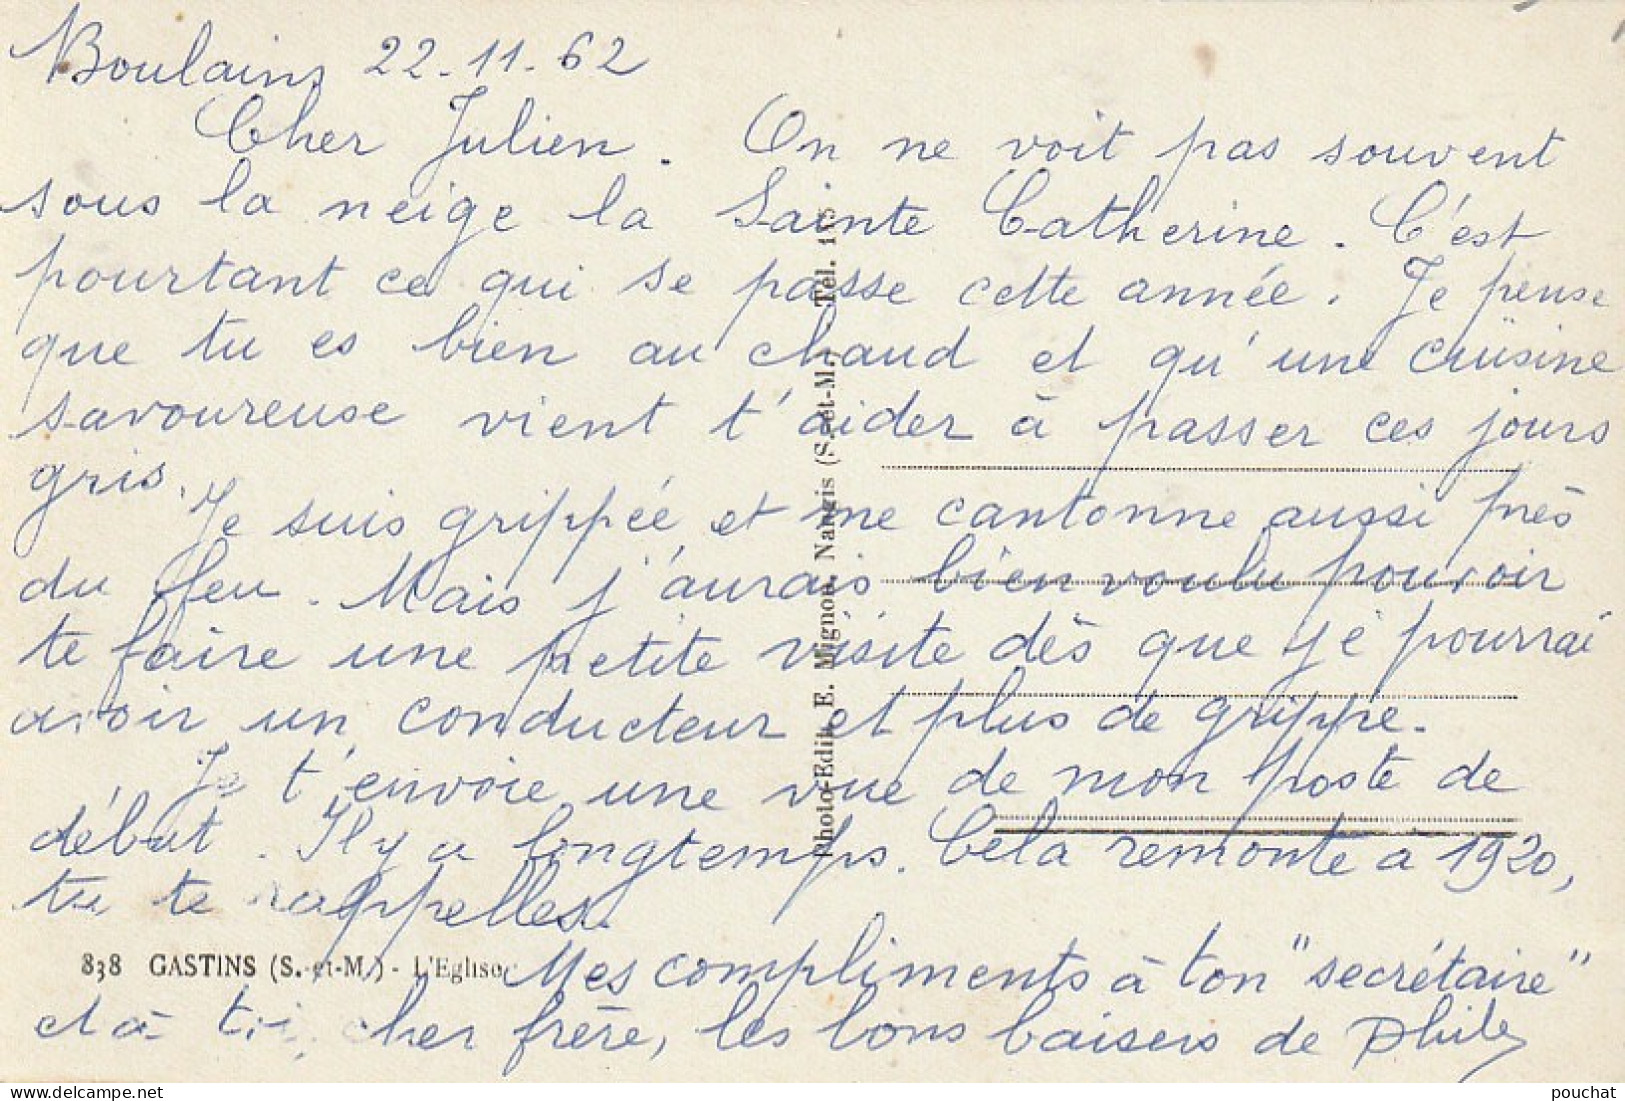 Boulains 22-11-62
Cher Julien. On ne voit pas souvent
sous la neige la Sainte Catherine. C'est
pourtant ce qui se passe cette année. Je pense
que tu es bien au chaud et qu'une cuisine
savoureuse vient t'aider à passer ces jours
gris.
Je suis grippée et me cantonne aussi près
du feu. Mais j'aurais bien voulu pouvoir
te faire une petite visite dès que je pourrai
avoir un conducteur et plus de grippe.
Je t'envoie une vue de mon poste de
début. Il y a longtemps. Cela remonte à 1920,
tu te rappelles.
Mes compliments à ton "secrétaire"
et à toi, cher frère, les bons baisers de
838 GASTINS (S.-et-M.) - L'Eglise
Photo-Edit. E. Mignon, Nangis (S.-et-M.) - Tél. 175
pouchat